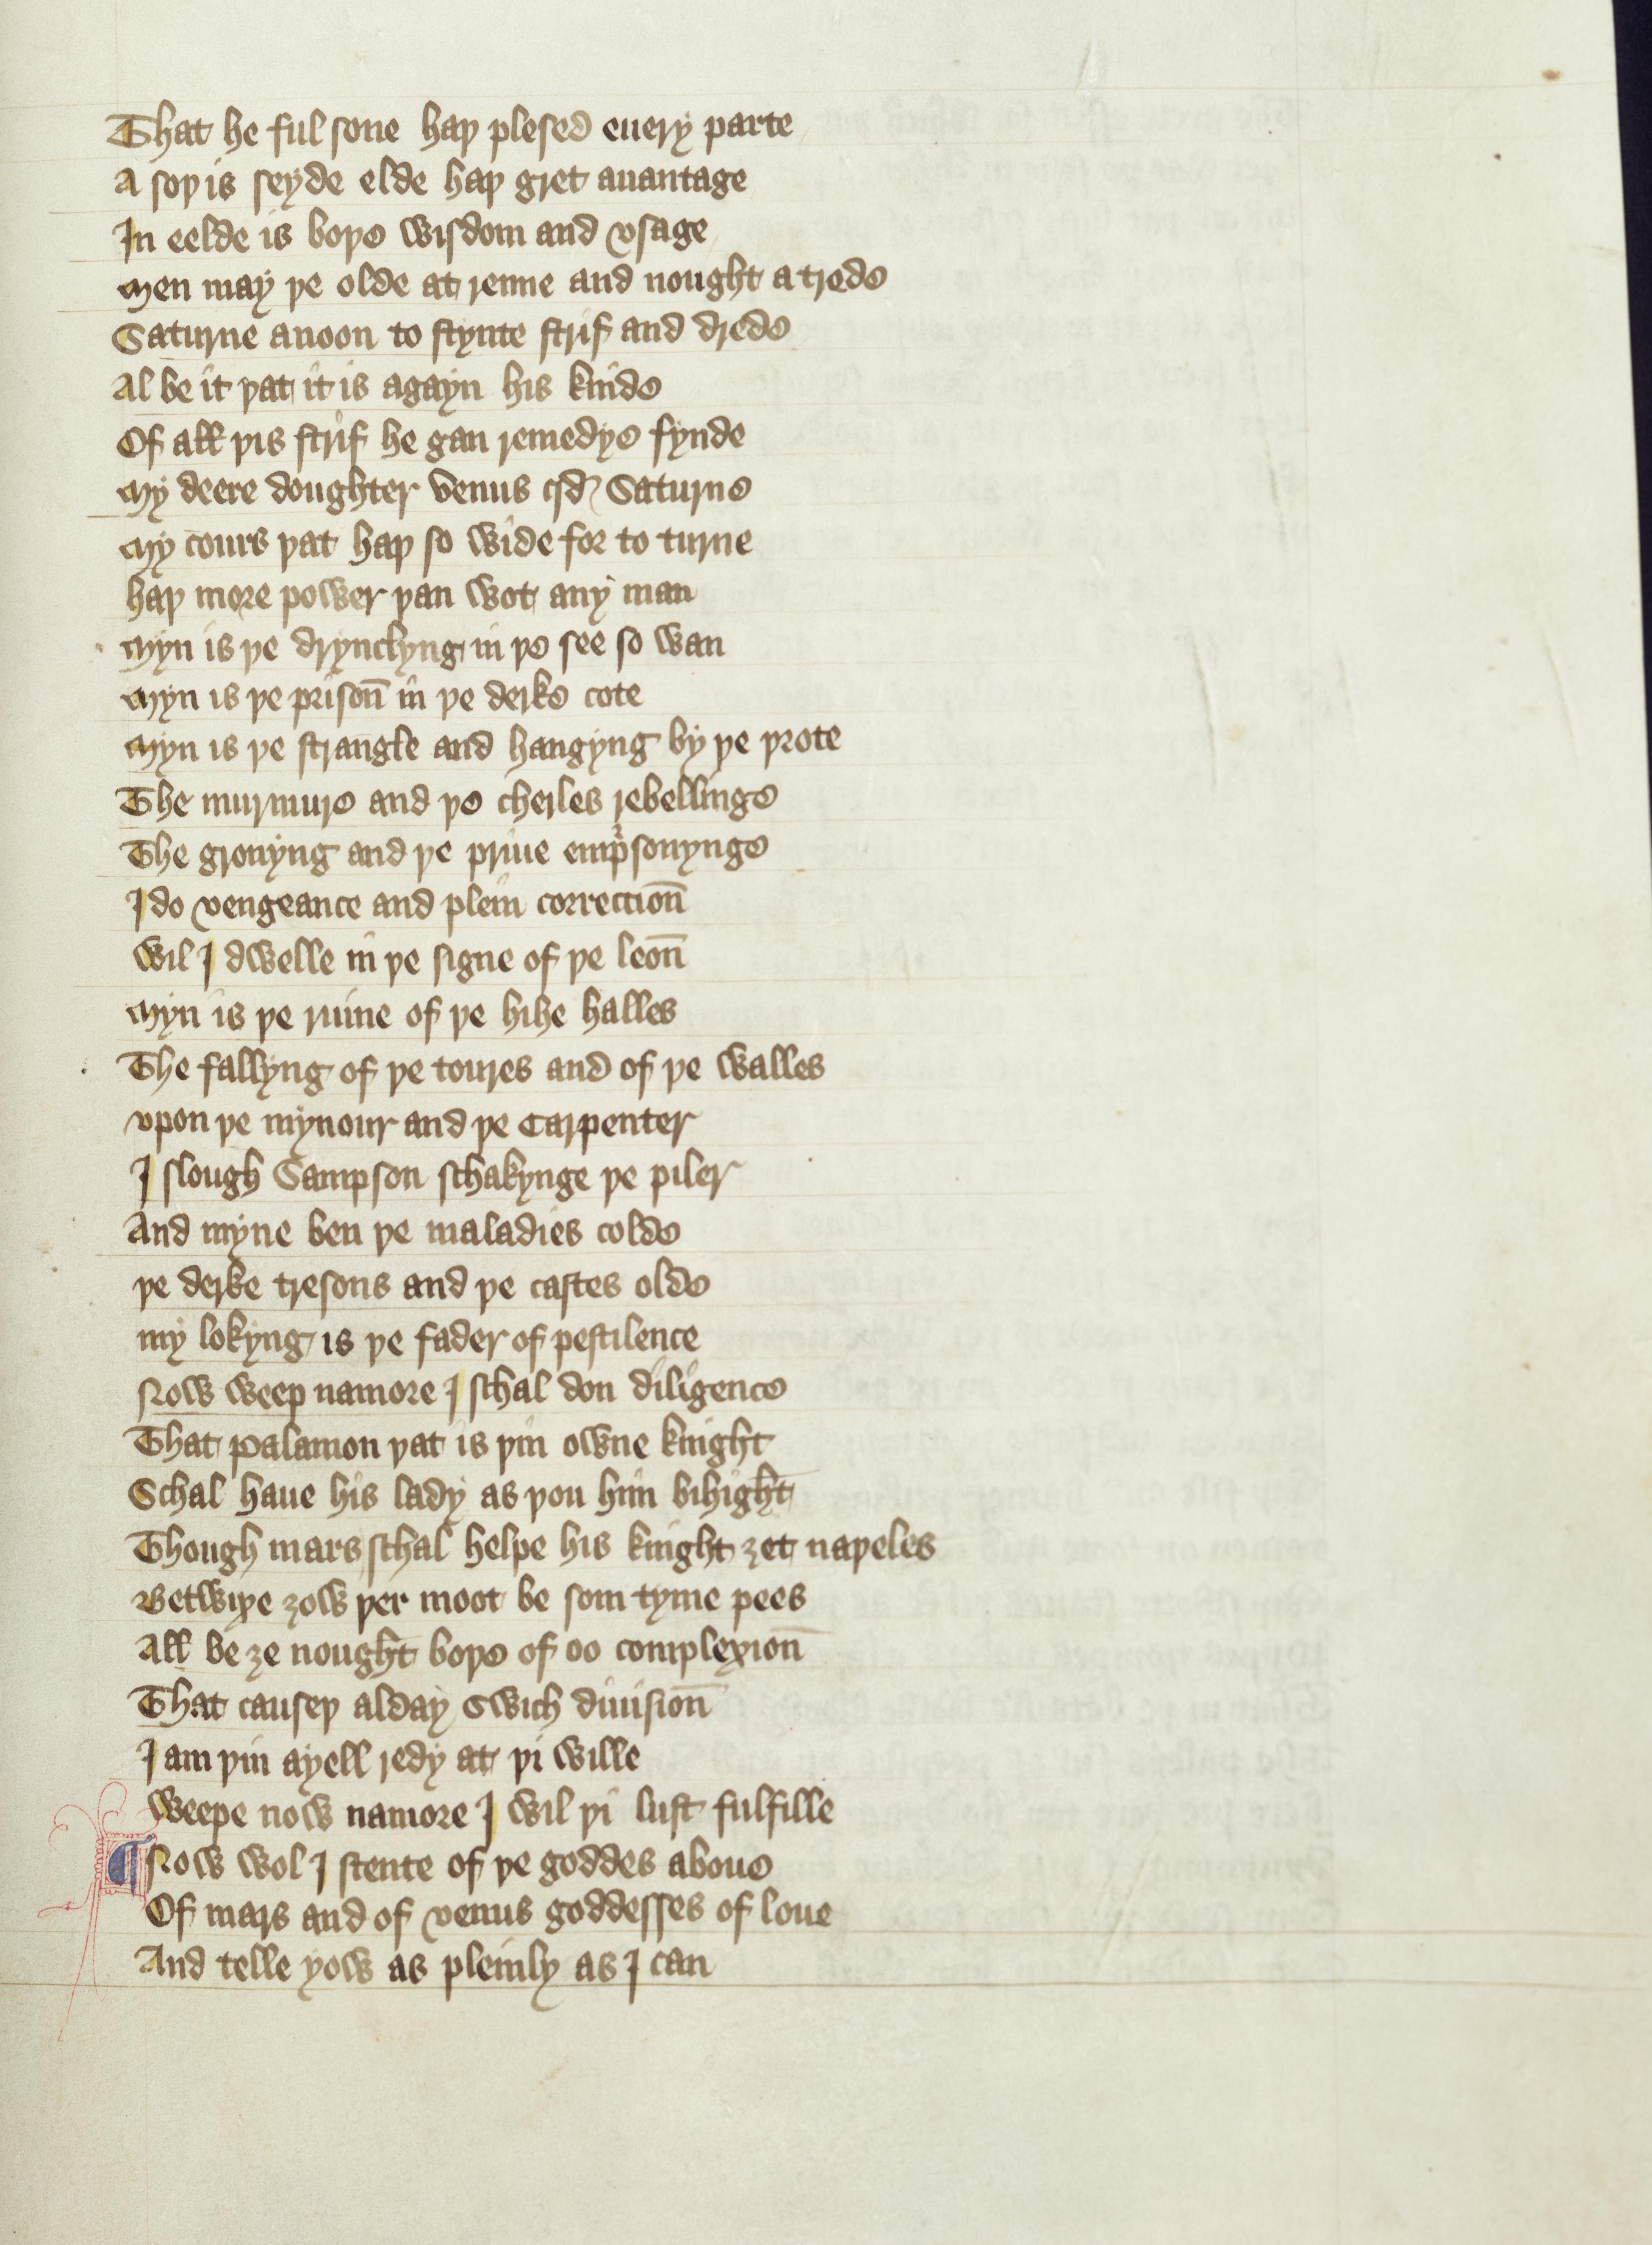 That he ful sone haþ plesed euery parte
A soþ is seyde elde haþ gret auantage
In eelde is boþe wisdom and vsage
Men may þe olde at renne and nought a trede
Saturne anoon to stynte strif and drede
Al be it þat it is agayn his kinde
Of all þis strif he gan remedye fynde
My deere doughter Venus qd Saturne
My cours þat haþ so wide for to turne
haþ more power þan wot any man
Myn is þe drynchyng in þe see so wan
Myn is þe prison̄ in þe derke cote
Myn is þe strangle and hangyng by þe þrote
The murmure and þe cherles rebellinge
The gronyng and þe priue empͥsonynge
I do vengeance and plein correction̄
Wil I dwelle in þe signe of þe leon̄
Myn is þe ruine of þe hihe halles
The fallyng of þe toures and of þe walles
vpon þe mynour and þe Carpenter
I slough Sampson schakynge þe piler
And myne ben þe maladies colde
þe derke tresons and þe castes olde
my lokyng is þe fader of pestilence
Now weep namore I schal don diligence
That Palamon þat is þin owne knight
Schal haue his lady as þou him bihight
Though mars schal helpe his knight ȝet naþeles
Betwixe ȝow þer moot be som tyme pees
All be ȝe nought boþe of oo complexion̄
That causeþ alday Swich diuision̄
I am þin ayell redy at þi wille
Weepe now namore I wil þi lust fulfille
¶ Now wol I stente of þe goddes aboue
Of mars and of venus goddesses of loue
And telle yow as pleinly as I can